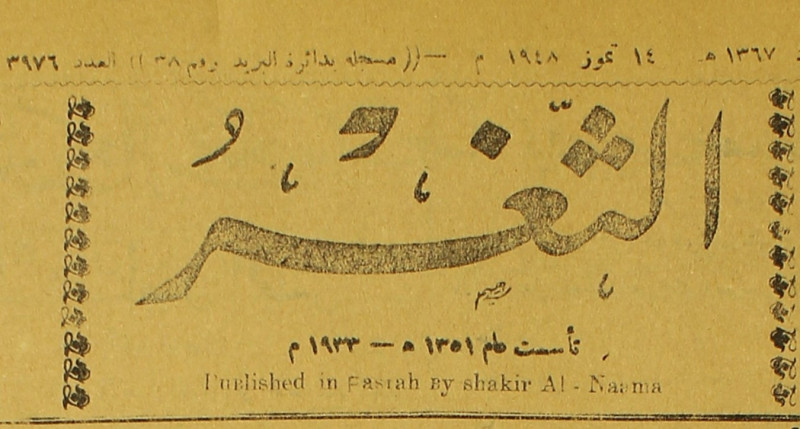 ١٣٦٧ هـ ١٤ تموز ١٩٤٨ م —((مسجله بدائرة البريد برقم ٣٨)) العدد ٣٩٧٦
الثغر
تأسست عام ١٣٥١ ه — ١٩٣٣ م
Published in Basrah By shakir Al - Naama